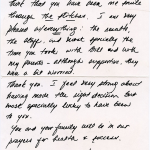 that you have seen me smile
through the stitches, I am very
pleased w/ everything: the results,
the staff, and most specially the
time you took with Bill and with
my parents - although supportive, they
are a bit worried.
Thank you. I feel very strong about
having made the right decision but
most specially lucky to have been
to you.
You and your family will be in our
prayers for health & success.